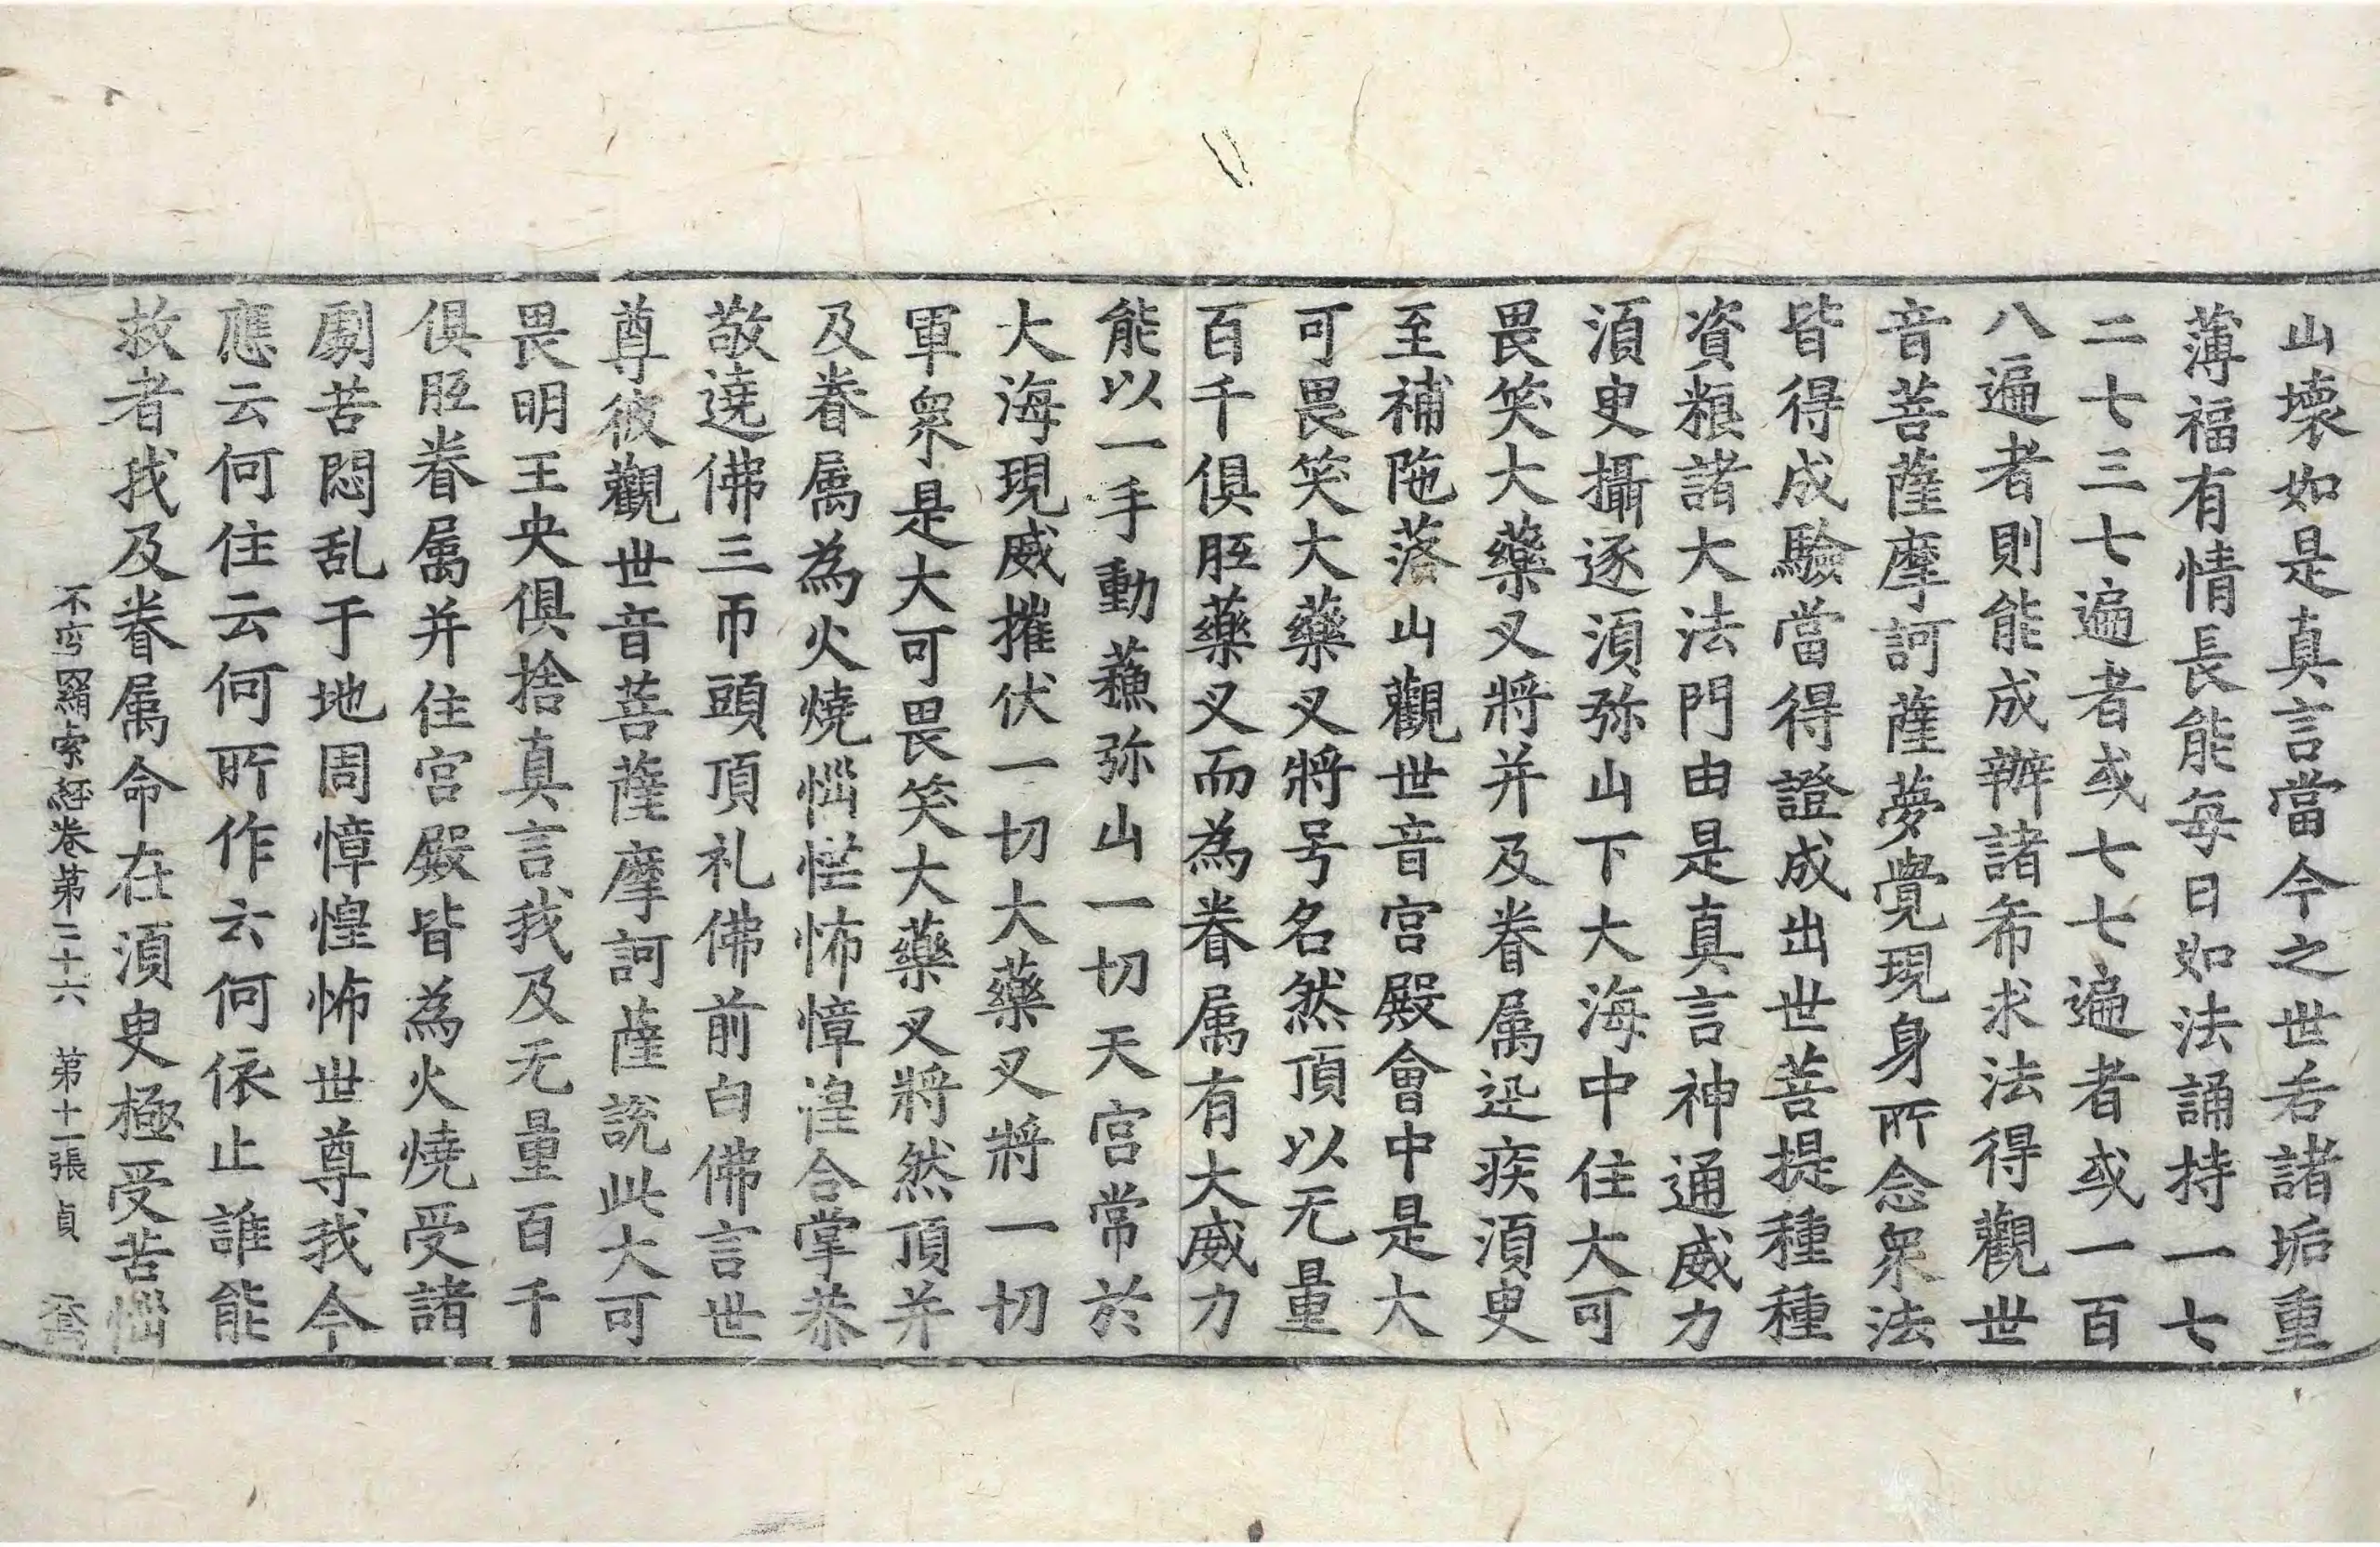 山壞如是真言當今之世若諸垢重
薄福有情長能每日如法誦持一七
二七三七遍者或七七遍者或一百
八遍者則能成辦諸希求法得觀世
音菩薩摩訶薩夢覺現身所念衆法
皆得成驗當得證成出世菩提種種
資粮諸大法門由是真言神通威力
湏臾攝逐湏弥山下大海中住大可
畏笑大藥叉將并及眷属迅疾湏臾
至補陁落山觀世音宮殿會中是大
可畏笑大藥叉將号名然頂以无量
百千俱胝藥叉而為眷属有大威力
能以一手動蘓弥山一切天宮常於
大海現威摧伏一切大藥叉將一切
軍衆是大可畏笑大藥叉將然頂并
及眷属為火燒惱惶怖慞湟合掌恭
敬遶佛三帀頭頂礼佛前白佛言世
尊彼觀世音菩薩摩訶薩說此大可
畏明王央俱捨真言我及无量百千
俱胝眷属并住宮殿皆為火燒受諸
劇苦悶乱于地周慞惶怖世尊我今
應云何住云何所作云何依止誰能
救者我及眷属命在湏臾極受苦惱
不空羂索經卷第二十六　第十一張　貞